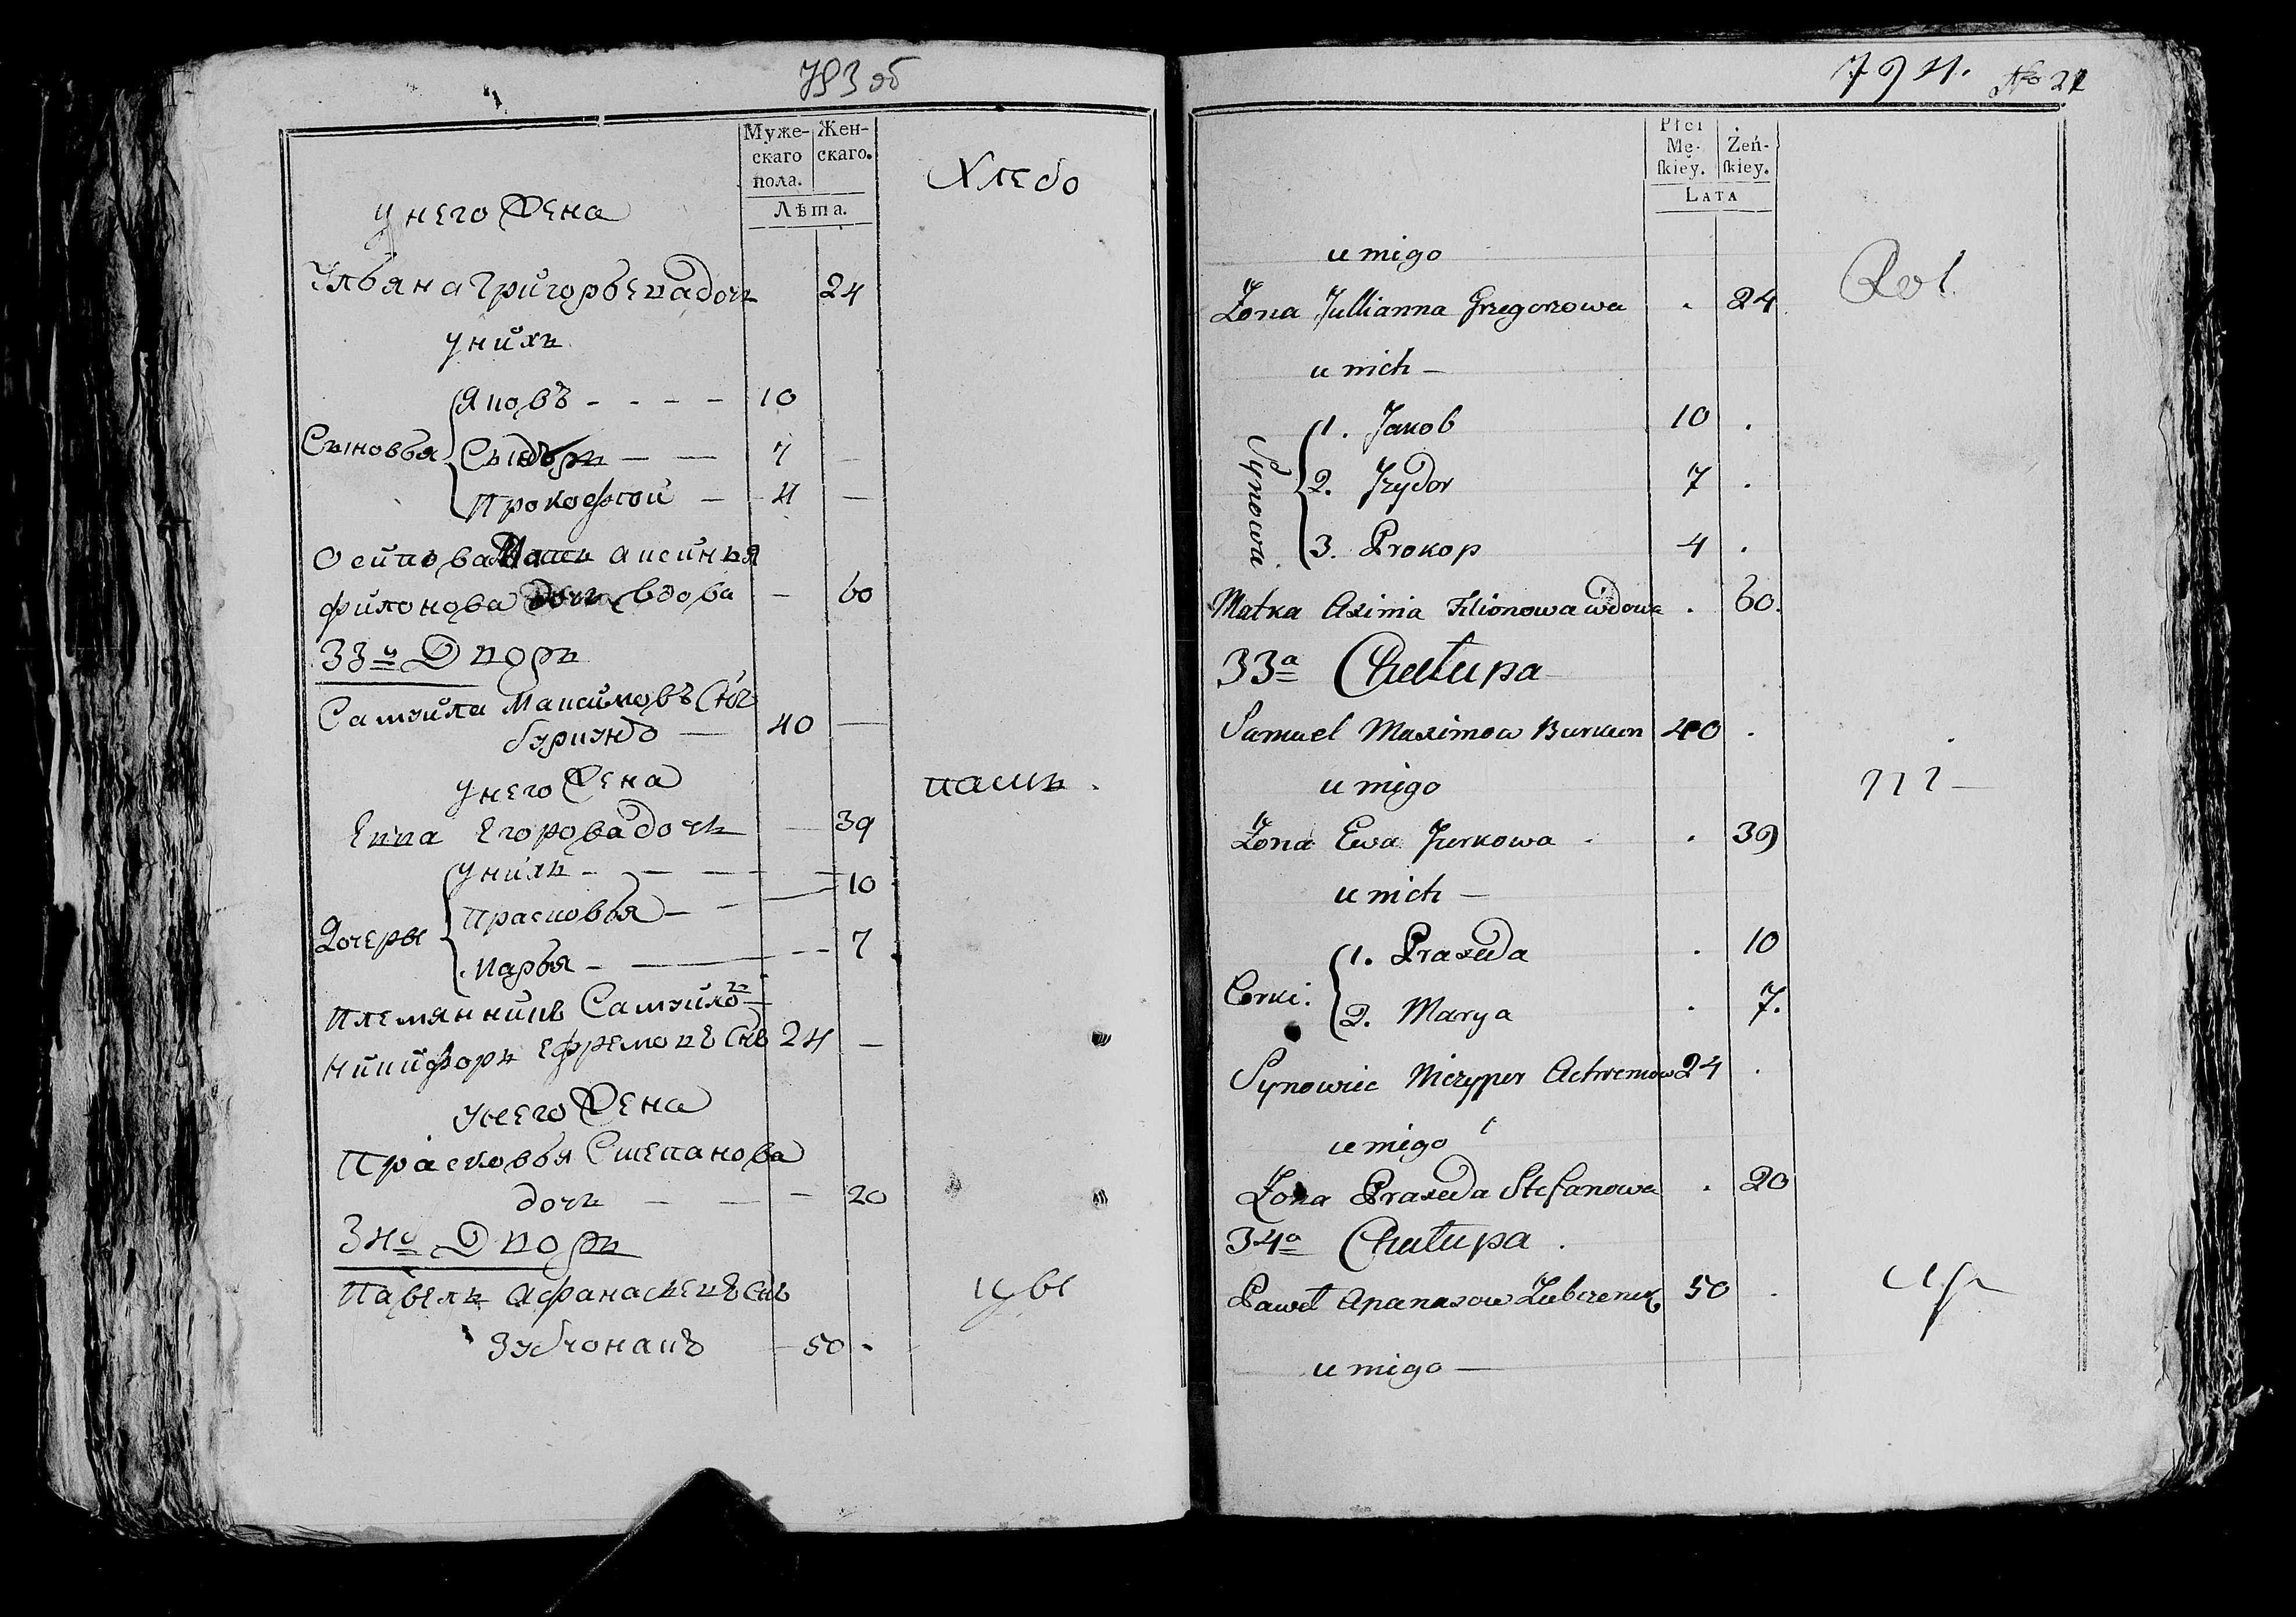 793 об
Муже-
скаго
пола.
Жен-
скаго.
Лѣта.
Хлебо
у него жена
Ульяна Григорьева дочь 24
у нихъ
Сыновья
Яковъ - - - - 10
Сыдъръ — — 7 —
Прокофей — 4 —
Осипова Мать Аксинья
Филонова дочь вдова — 60
33й Дворъ
Самуйла Максимовъ Сн̃ъ
буркунъ — 40 —
у него жена
пашъ.
Евва Егорова дочь — 39
у нихъ - — — —
Дочеры
Прасковья — - — 10
Марья - — — - 7
Племянникъ Самуйло
Никифоръ Ефремовъ Снъ 24 —
у него жена
Прасковья Степанова
дочь — — — 20
34й Дворъ
Павелъ Афанасьевъ Снъ
Зубчонакъ — 50 -
794. No 21
Płci
Mę-
skiey.
Żeń-
skiey.
Lata
u niego
Rol.
Żona Jullianna Grzegorzowa . 24
u nich —
Synowie.
1. Jakob 10 .
2. Jzydor 7 .
3. Prokop 4 .
Matka Axinia Filionowa wdowa . 60.
33a Chałupa
Samuel Maximow Burkun 40 .
u niego
Żona Ewa Jurkowa . . 39
u nich —
Corki.
1. Praxeda . 10
2. Marya . 7.
Synowiec Niczyper Achremow 24 .
u niego
Żona Praxeda Stefanowa . 20
34a Chałupa .
Paweł Apanasow Zubczenok 50 .
u niego —